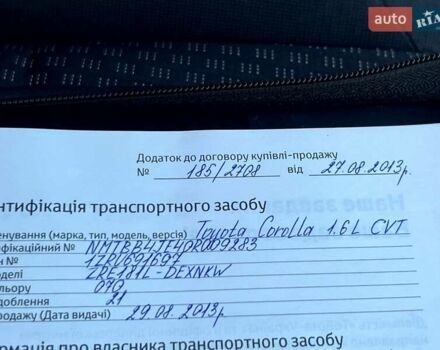 auto RIA
Додаток до договору купівлі-продажу
№ 185/2708 від 27.08.2013р.
нтифікація транспортного засобу
менування (марка, тип, модель, версія) Toyota Corolla 1.6L CVT
ифікаційний № NMTBB4JE40R009283
н № 1ZRU691697
оделі ZRE181L-DEXNKW
льору 070
облення 21
родажу (Дата видачі) 29.08.2013р
рмація про власника транспортного засобу